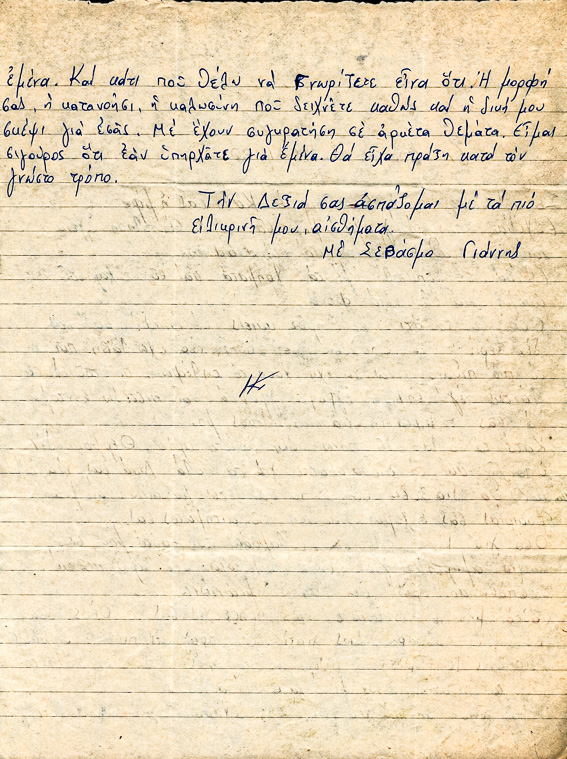 ἐμένα. Καί κάτι ποῦ θέλω νά γνωρίζετε εἶνα ὅτι. Ἡ μορφή
σας, ἡ κατανοῆσι, ἡ καλωσύνη ποῦ δειχνῆτε καθώς καί ἡ δική μου
σκέψι γιά ἐσᾶς. Μέ ἔχουν συγκρατήση σέ ἀρκέτα θεματα. Εἶμαι
σίγουρος ὅτι ἐάν ὑπηρχᾶτε γιά ἐμένα. Θά εἶχα πράξη κατά τόν
γνώστο τρόπο.
Τήν Δεξιά σας ἀσπάζομαι μέ τά πιό
εἰλικρινῆ μου, αἰσθήματα.
Μέ Σεβάσμο Γιάννης